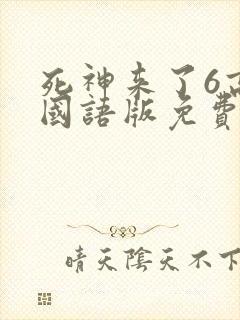 死神来了6高
國語版免費
晴天陰天不下